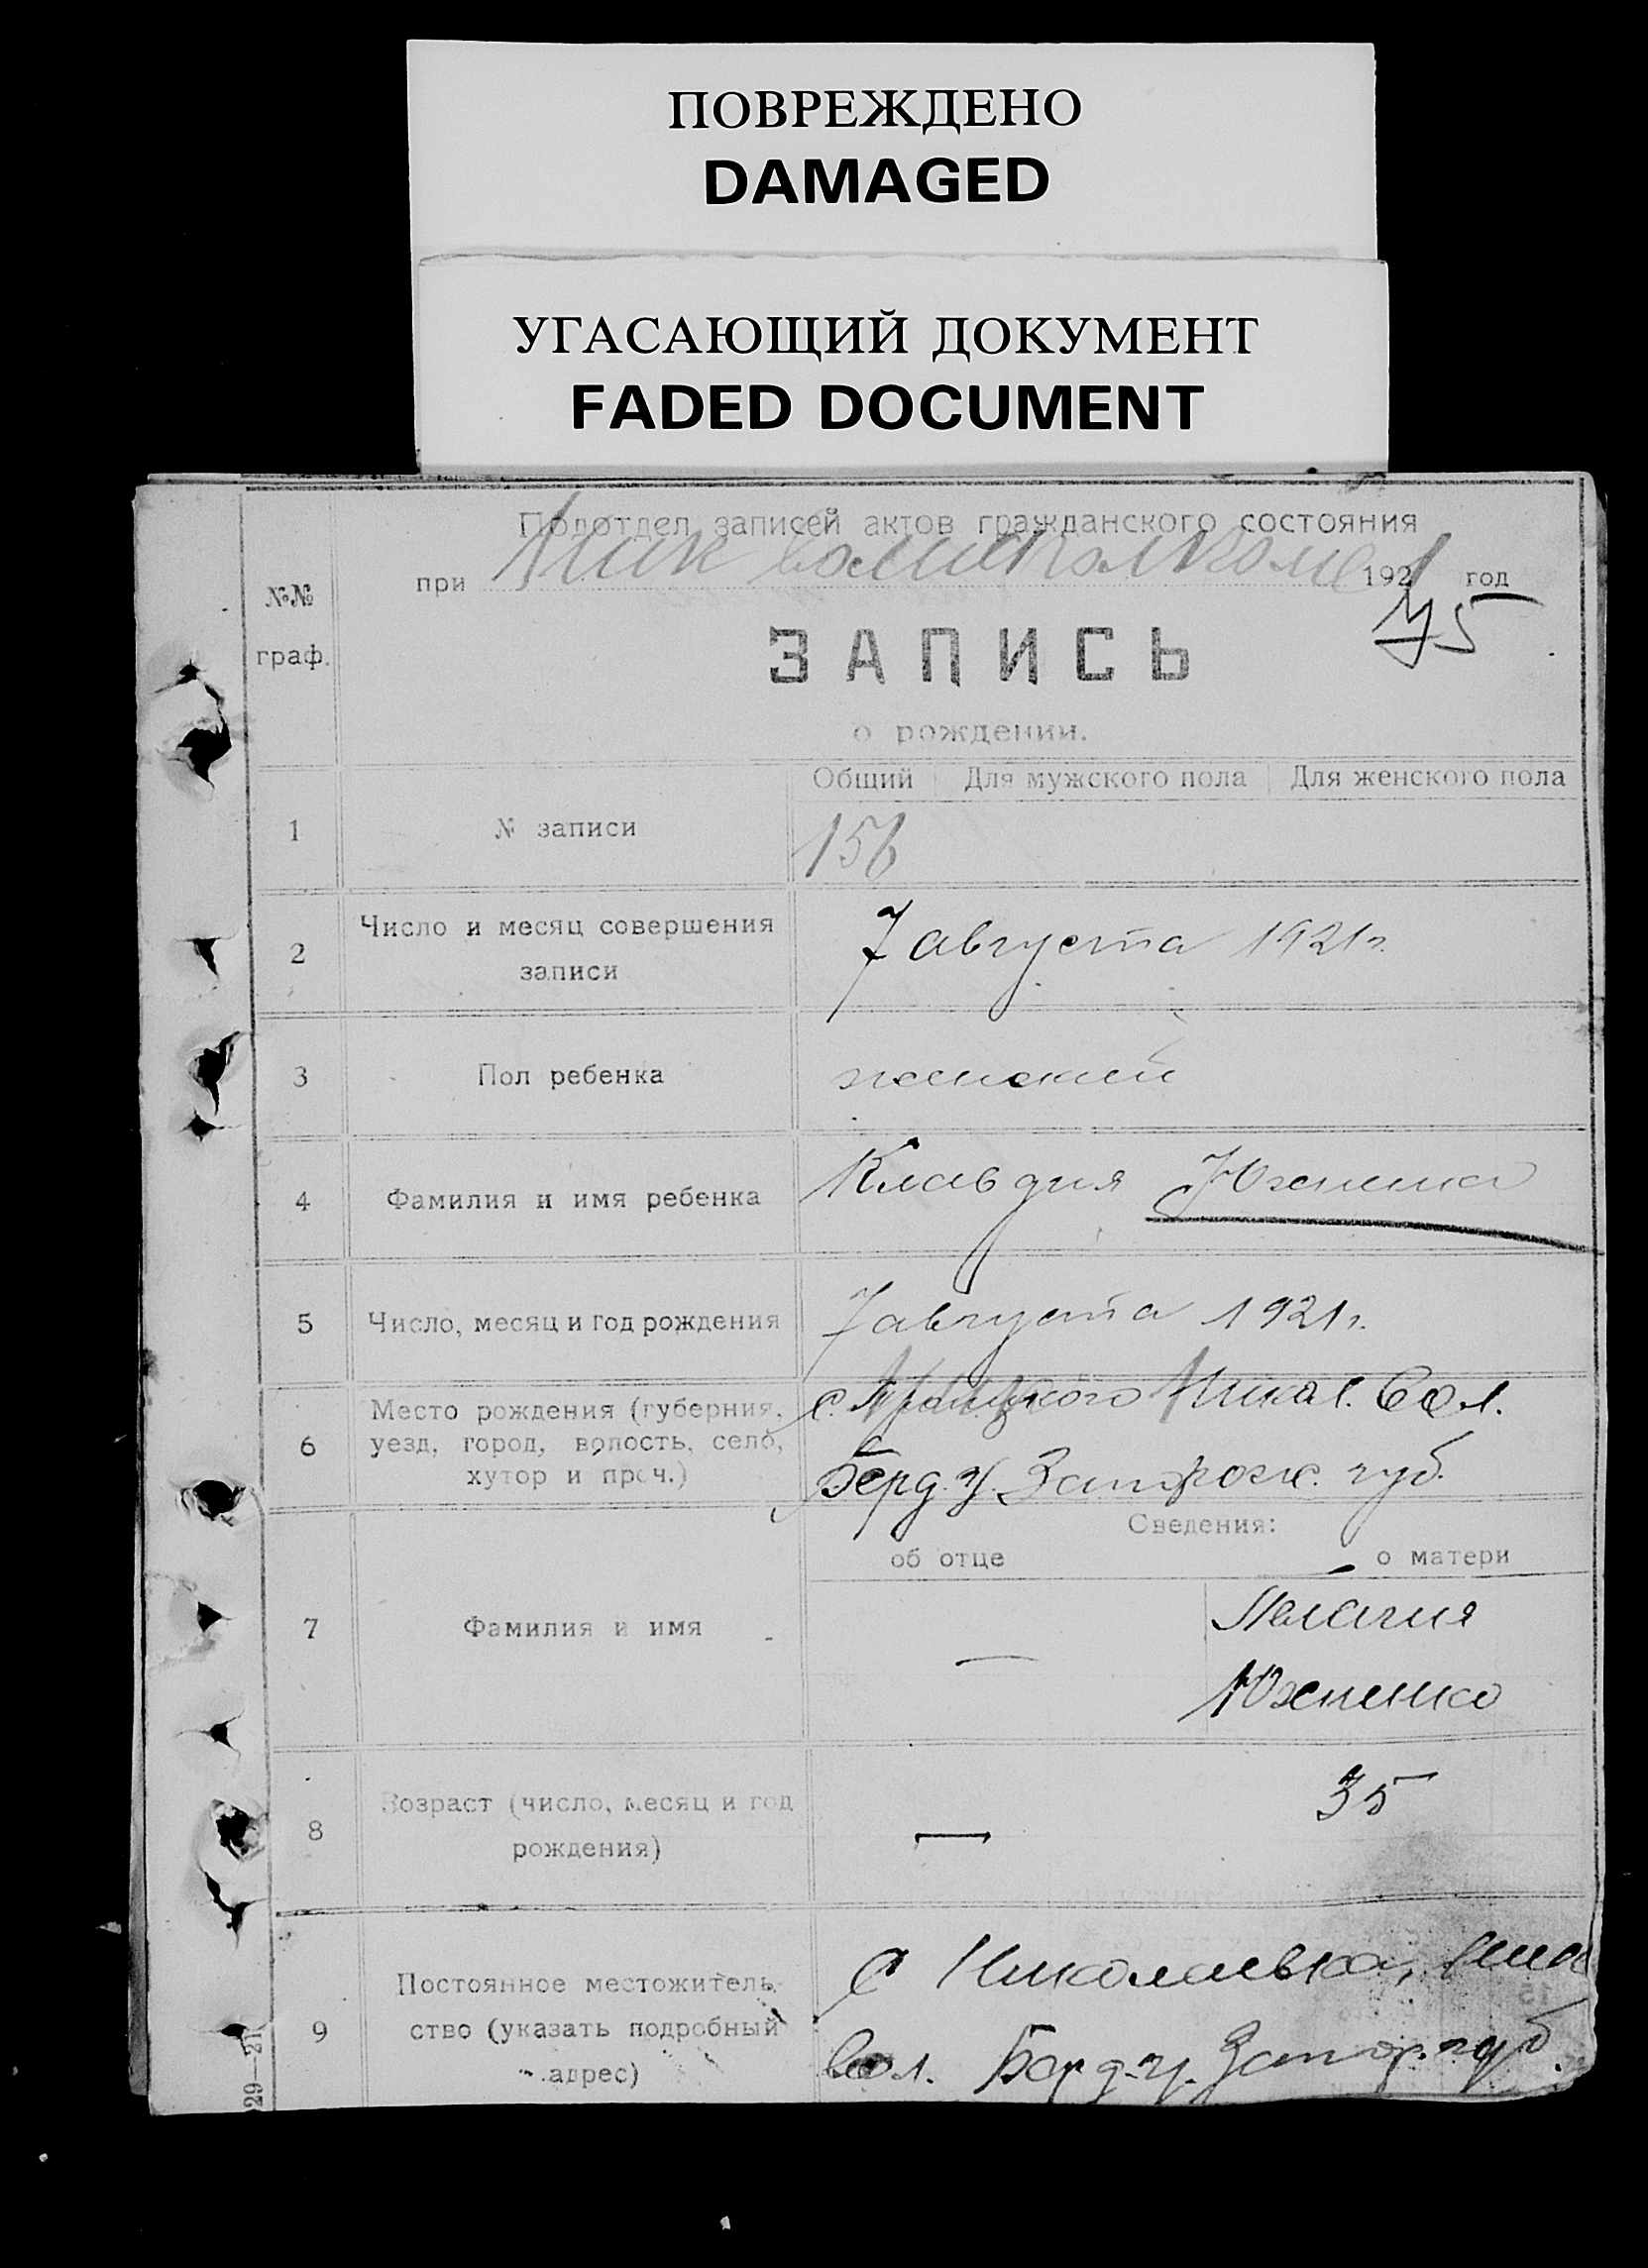 ПОВРЕЖДЕНО
DAMAGED
УГАСАЮЩИЙ ДОКУМЕНТ
FADED DOCUMENT
Подотдел записей актов гражданского состояния
№№ граф.
при 1921 год
75
ЗАПИСЬ
о рождении.
Общий Для мужского пола Для женского пола
1 № записи 156
2 Число и месяц совершения записи 7 августа 1921 г.
3 Пол ребенка женский
4 Фамилия и имя ребенка Клавдия
5 Число, месяц и год рождения 7 августа 1921 г.
6 Место рождения (губерния, уезд, город, волость, село, хутор и проч.)
с. Никол. Вол.
Берд. у. Запорож. губ.
Сведения:
об отце о матери
7 Фамилия и имя — Пелагия
8 Возраст (число, месяц и год рождения) — 35
9 Постоянное местожительство (указать подробный адрес)
с Николаевка, Ник
Вол. Берд. у. Запор. губ.
29—21